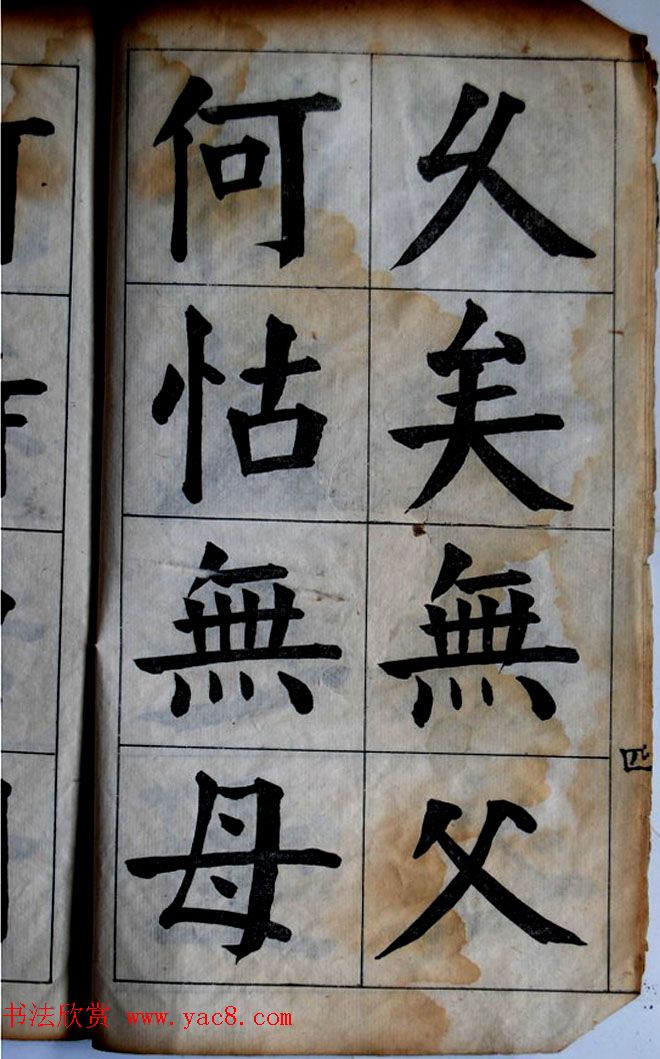 久矣無父
何怙無母
四
书法欣赏 www.yac8.com